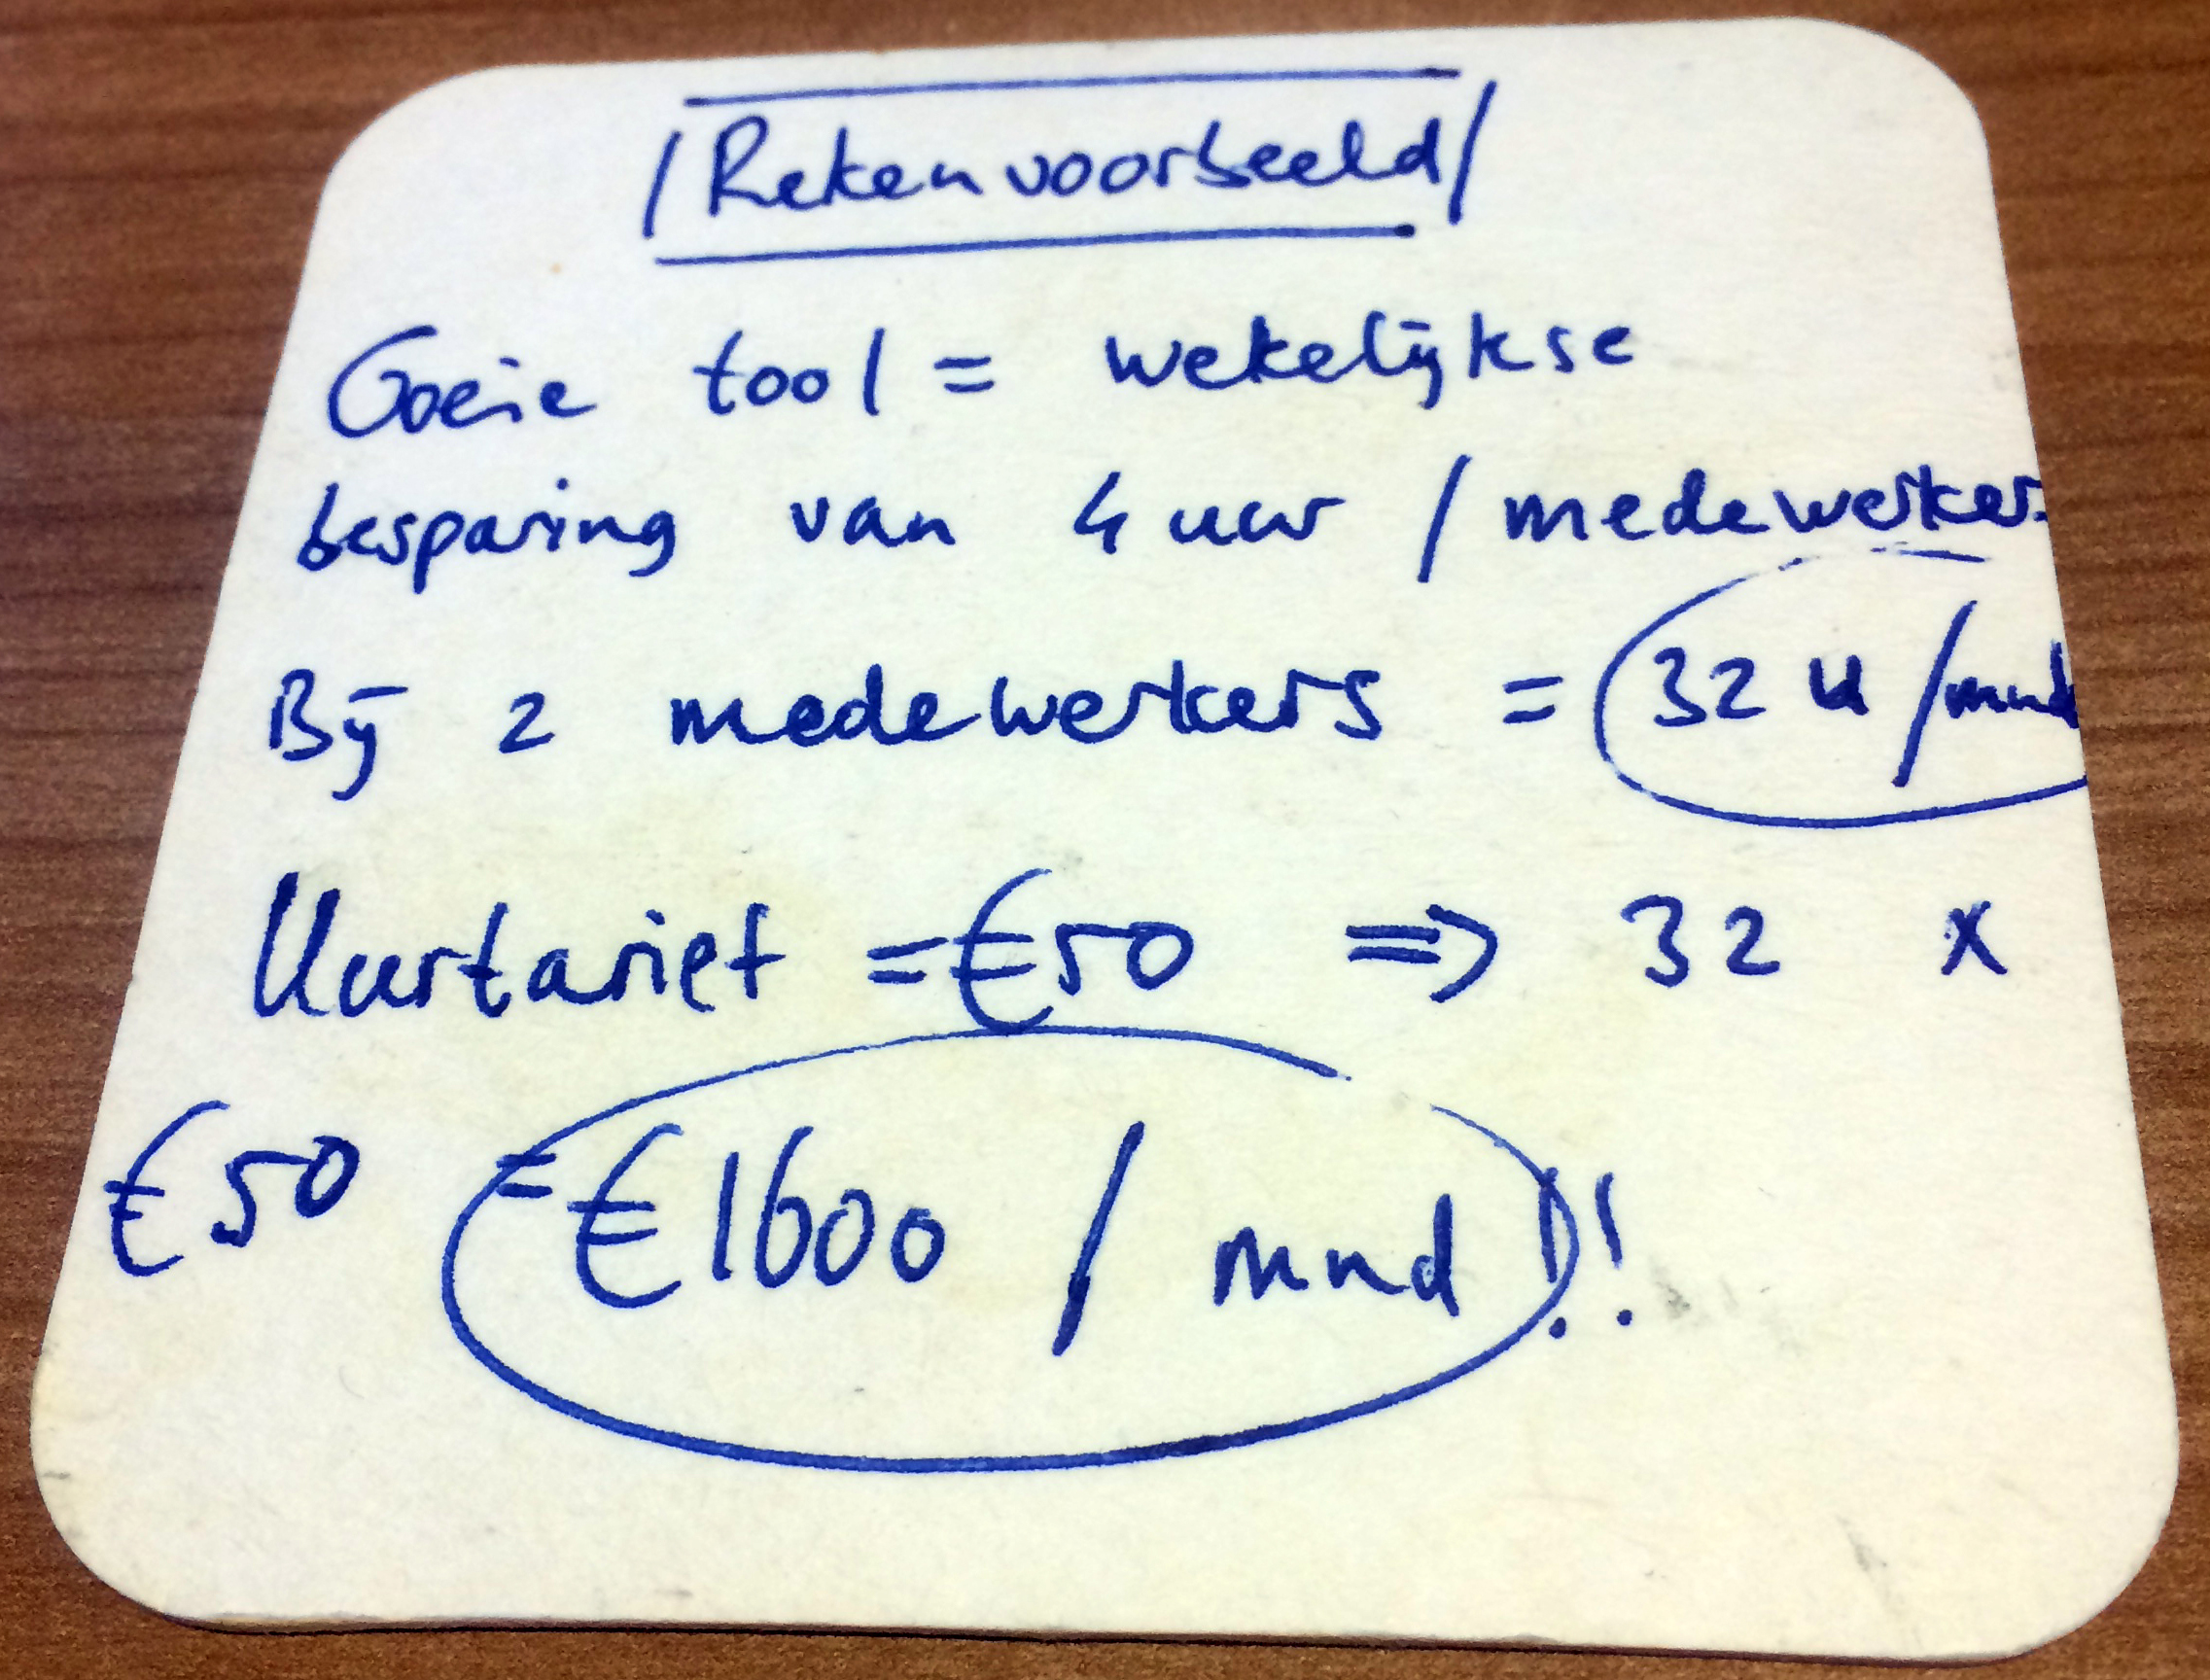 /Rekenvoorbeeld/
Goeie tool = wekelijkse
besparing van 4 uur / medewerker.
Bij 2 medewerkers = 32 u / mnd
Uurtarief = €50 => 32 x
€50 = €1600 / mnd!!